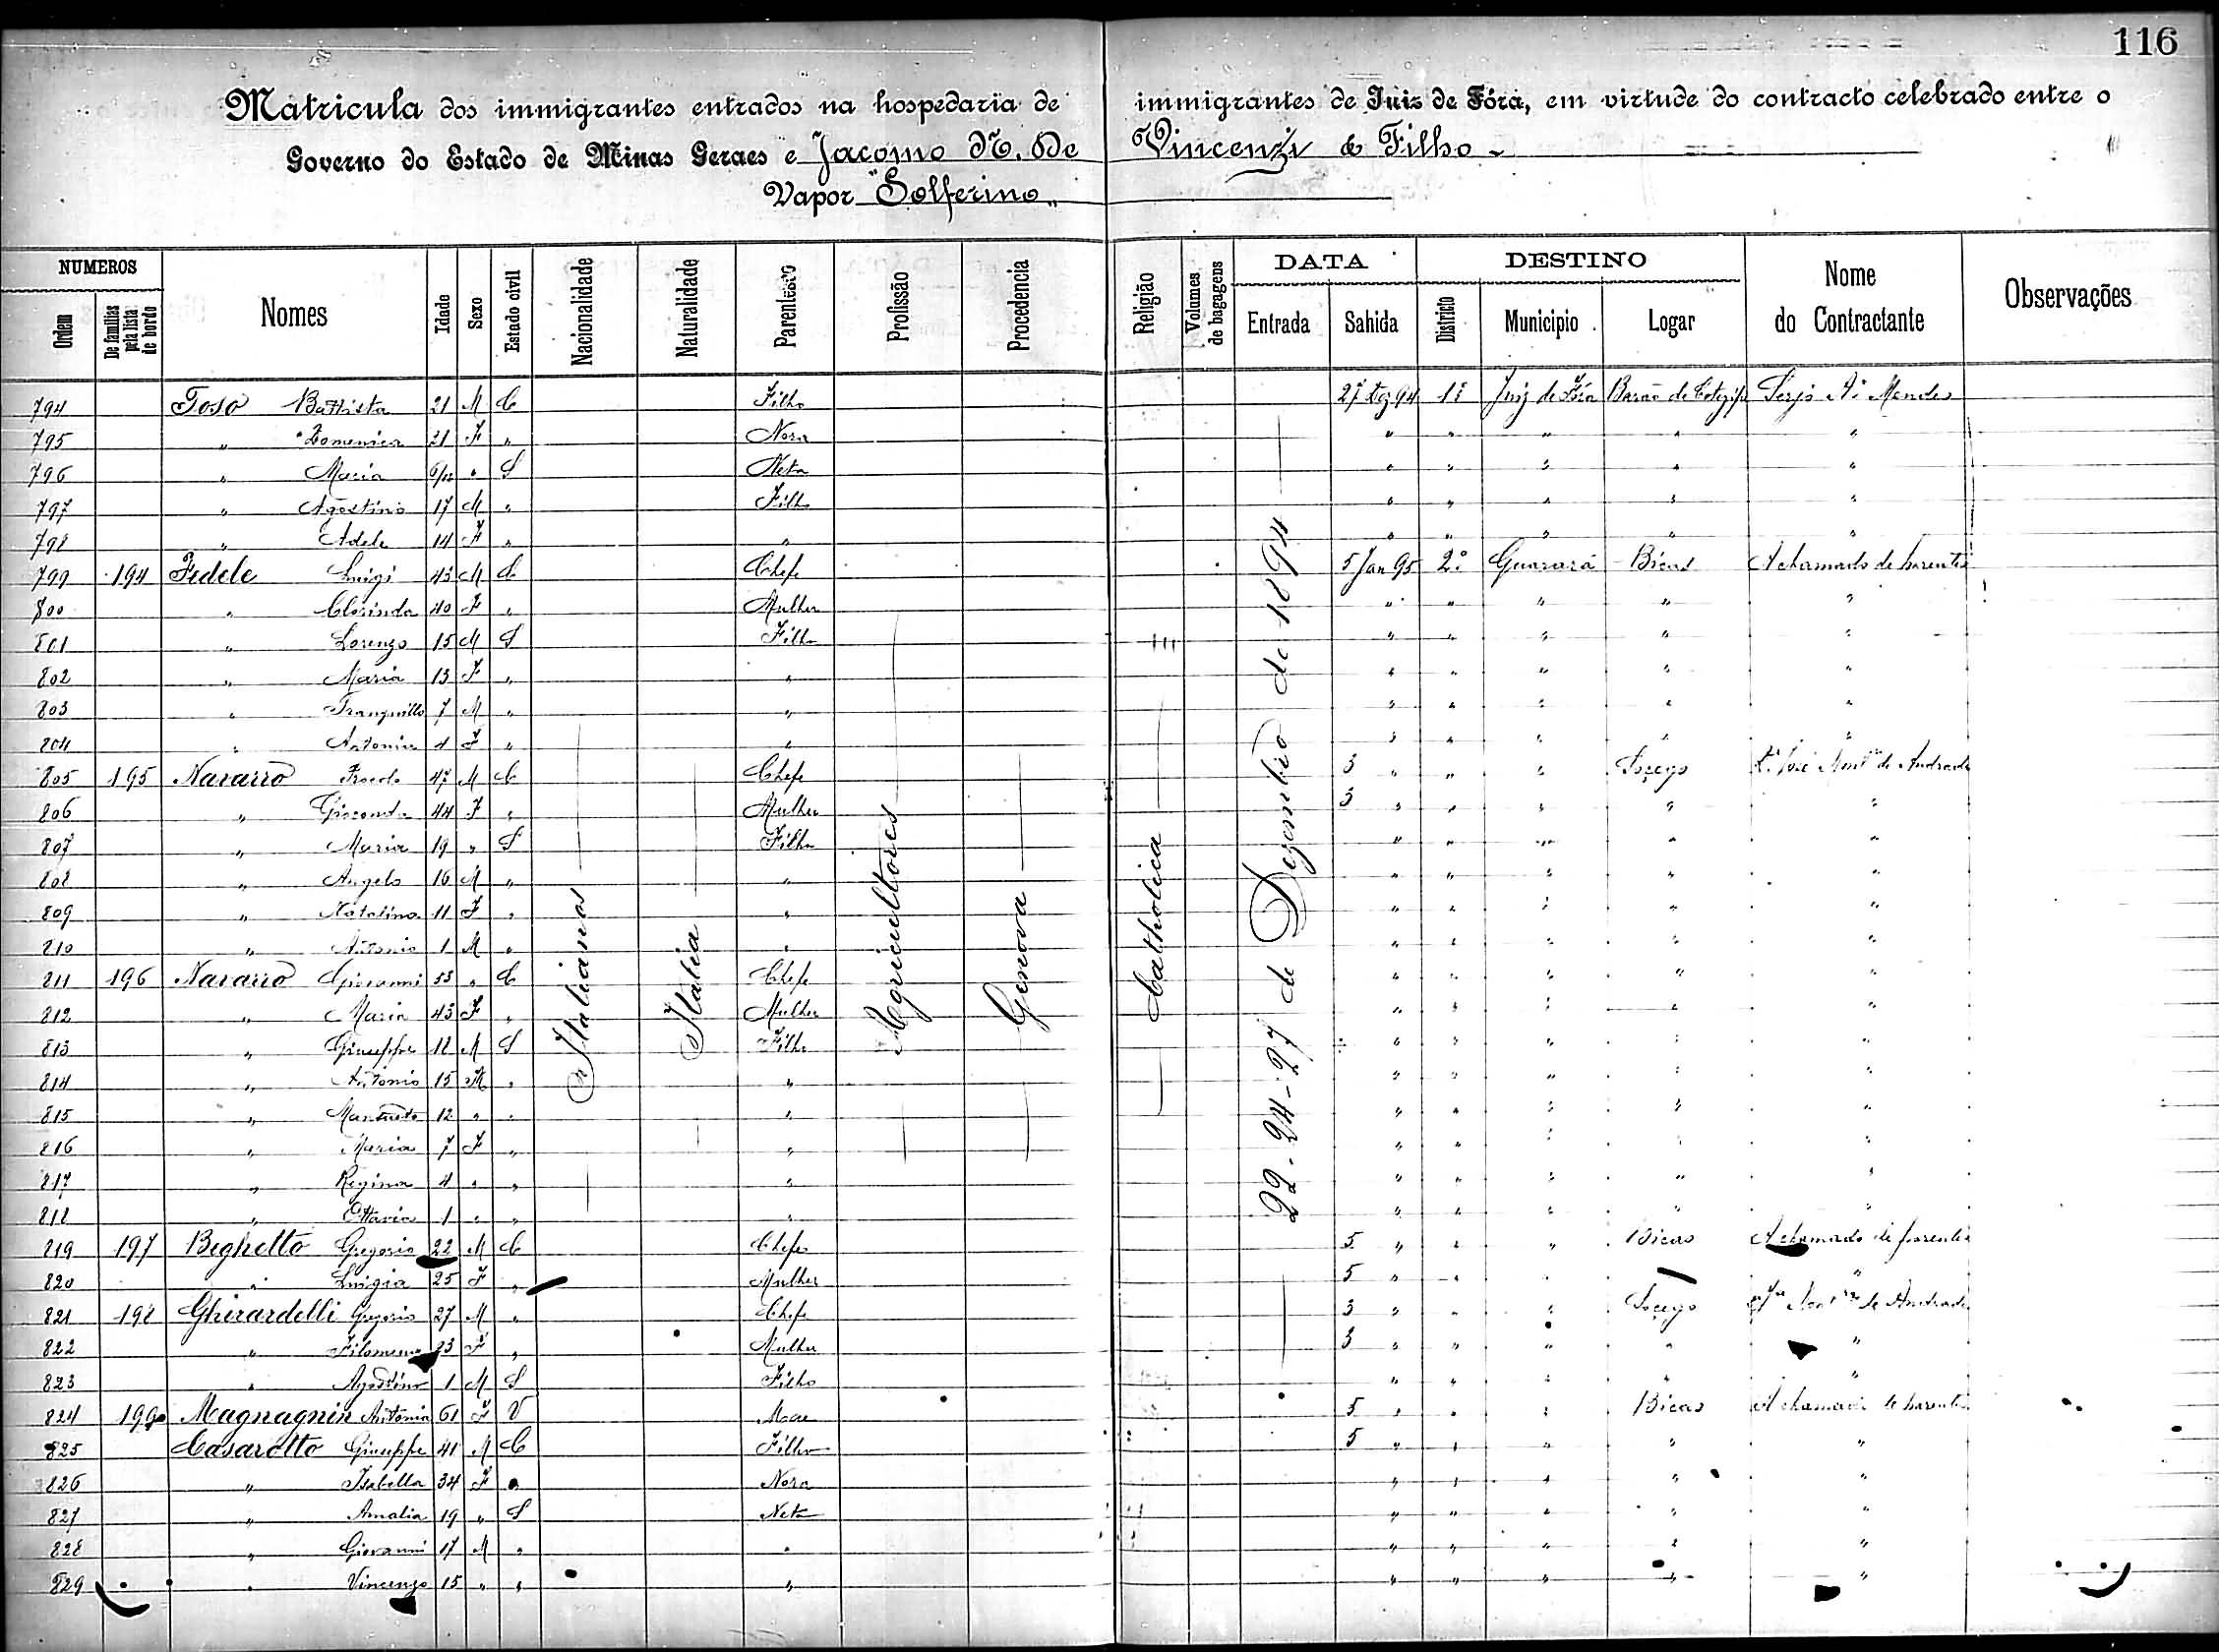 116
Matricula dos immigrantes entrados na hospedaria de immigrantes de Juiz de Fóra, em virtude do contracto celebrado entre o
Governo do Estado de Minas Geraes e Jacomo N. De Vincenzi & Filho
Vapor "Solferino"
NUMEROS DATA DESTINO
Ordem De familias pela lista de bordo Nomes Idade Sexo Estado civil Nacionalidade Naturalidade Parentesco Profissão Procedencia Religião Volumes de bagagens Entrada Sahida Districto Municipio Logar Nome do Contractante Observações
Italianos Italia Agricultores Genova Catholica 22-24-27 de Dezembro de 1894
794 Toso Battista 21 M C Filho 27 Dez 94 1º Juiz de Fóra Barão de Cotegipe Mendes
795 " Domenica 21 F " Nora " " " " "
796 " Maria 6/12 " S Neta " " " " "
797 " Agostino 17 M " Filho " " " " "
798 " Adele 14 F " " " " " " "
799 194 Fedele Luigi 43 M C Chefe 5 Jan 95 2º Guarará Bicas A chamado de parentes
800 " Clorinda 40 F " Mulher " " " " "
801 " Lorenzo 15 M S Filho " " " " "
802 " Maria 13 F " " " " " " "
803 " Tranquillo 7 M " " " " " " "
804 " Antonia 4 F " " " " " " "
805 195 Navarro 47 M C Chefe 3 " " " Socego José de Andrade
806 " Gioconda 44 F " Mulher 3 " " " " "
807 " Maria 19 " S Filha " " " " "
808 " Angelo 16 M " " " " " " "
809 " Natalina 11 F " " " " " " "
810 " Antonio 1 M " " " " " " "
811 196 Navarro Giovanni 53 " C Chefe " " " " "
812 " Maria 43 F " Mulher " " " " "
813 " Giuseppe 18 M S Filho " " " " "
814 " Antonio 15 M " " " " " " "
815 " Mansueto 12 " " " " " " " "
816 " Maria 7 F " " " " " " "
817 " Regina 4 " " " " " " " "
818 " Ottavia 1 " " " " " " " "
819 197 Beghetto Gregorio 22 M C Chefe 5 " " " Bicas A chamado de parentes
820 " Luigia 25 F " Mulher 5 " " " "
821 198 Ghirardelli Gregorio 27 M " Chefe 3 " " " Socego de Andrade
822 " Filomena 23 F " Mulher 3 " " " " "
823 " Agostino 1 M S Filho " " " " "
824 199 Magnagnin Antonia 61 F V Mãe 5 " " " Bicas A chamado de parentes
825 Casarotto Giuseppe 41 M C Filho 5 " " " " "
826 " Isabella 34 F " Nora " " " " "
827 " Amalia 19 " S Neta " " " " "
828 " Giovanni 17 M " " " " " " "
829 " Vincenzo 15 " " " " " " " "